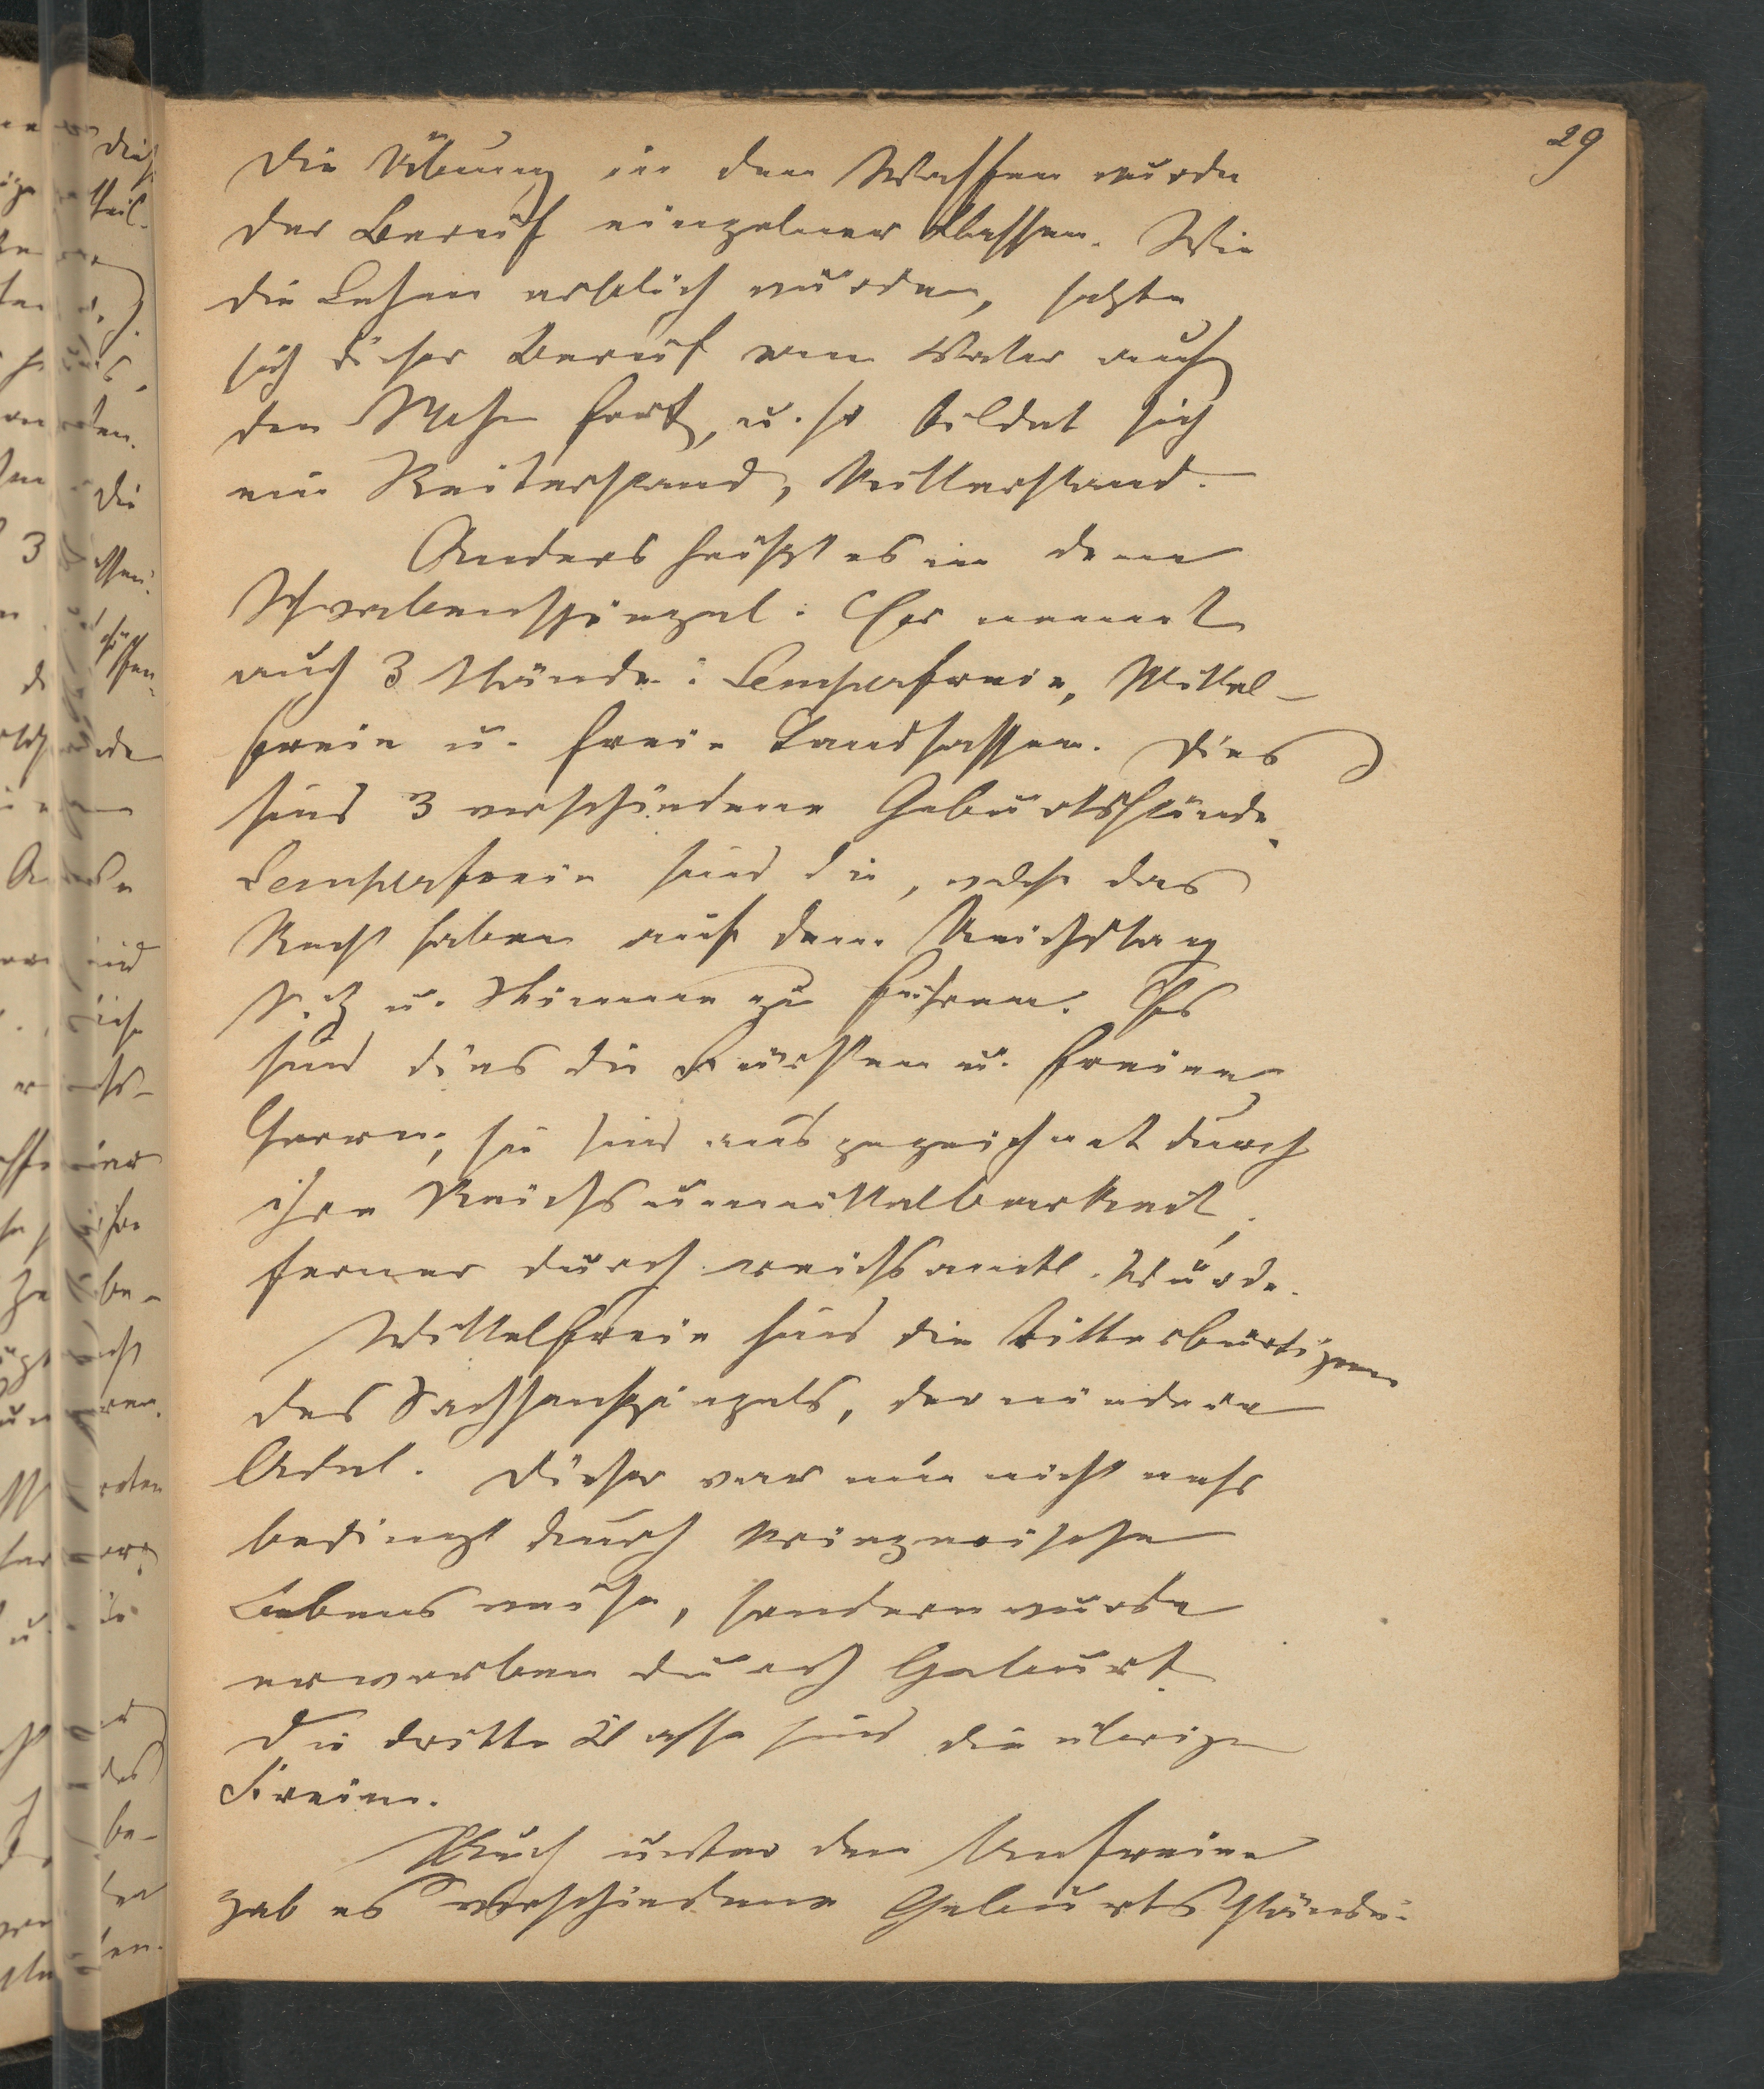 29
Die Übung in den Waffen wurde
der Beruf einzelner Klassen. Wie
die Lehen erblich wurden, setzte
sich dieser Beruf vom Vater auf
den Sohn fort, u. so bildet sich
ein Reiterstand, Ritterstand.
Anders heißt es in dem
Schwabenspiegel. Er nennt
auch 3 Stände: Semperfreie, Mittel-
freie u. freie Landsassen. Dies
sind 3 verschiedene Geburtsstände.
Semperfreie sind die, welche das
Recht haben auf dem Reichstag
Sitz u. Stimme zu führen. Es
sind dies die Fürsten u. freien
Herrn; sie sind ausgezeichnet durch
ihre Reichsunmittelbarkeit,
ferner durch reichsamtl. Würde.
Mittelfreie sind die ritterbürtigen
des Sachsenspiegels, der niedere
Adel. Dieser war nun nicht mehr
bedingt durch kriegerische
Lebensweise, sondern wurde
erworben durch Geburt.
Die dritte Klasse sind die übrigen
Freien.
Auch unter den Unfreien
gab es verschiedene Geburtsstände.